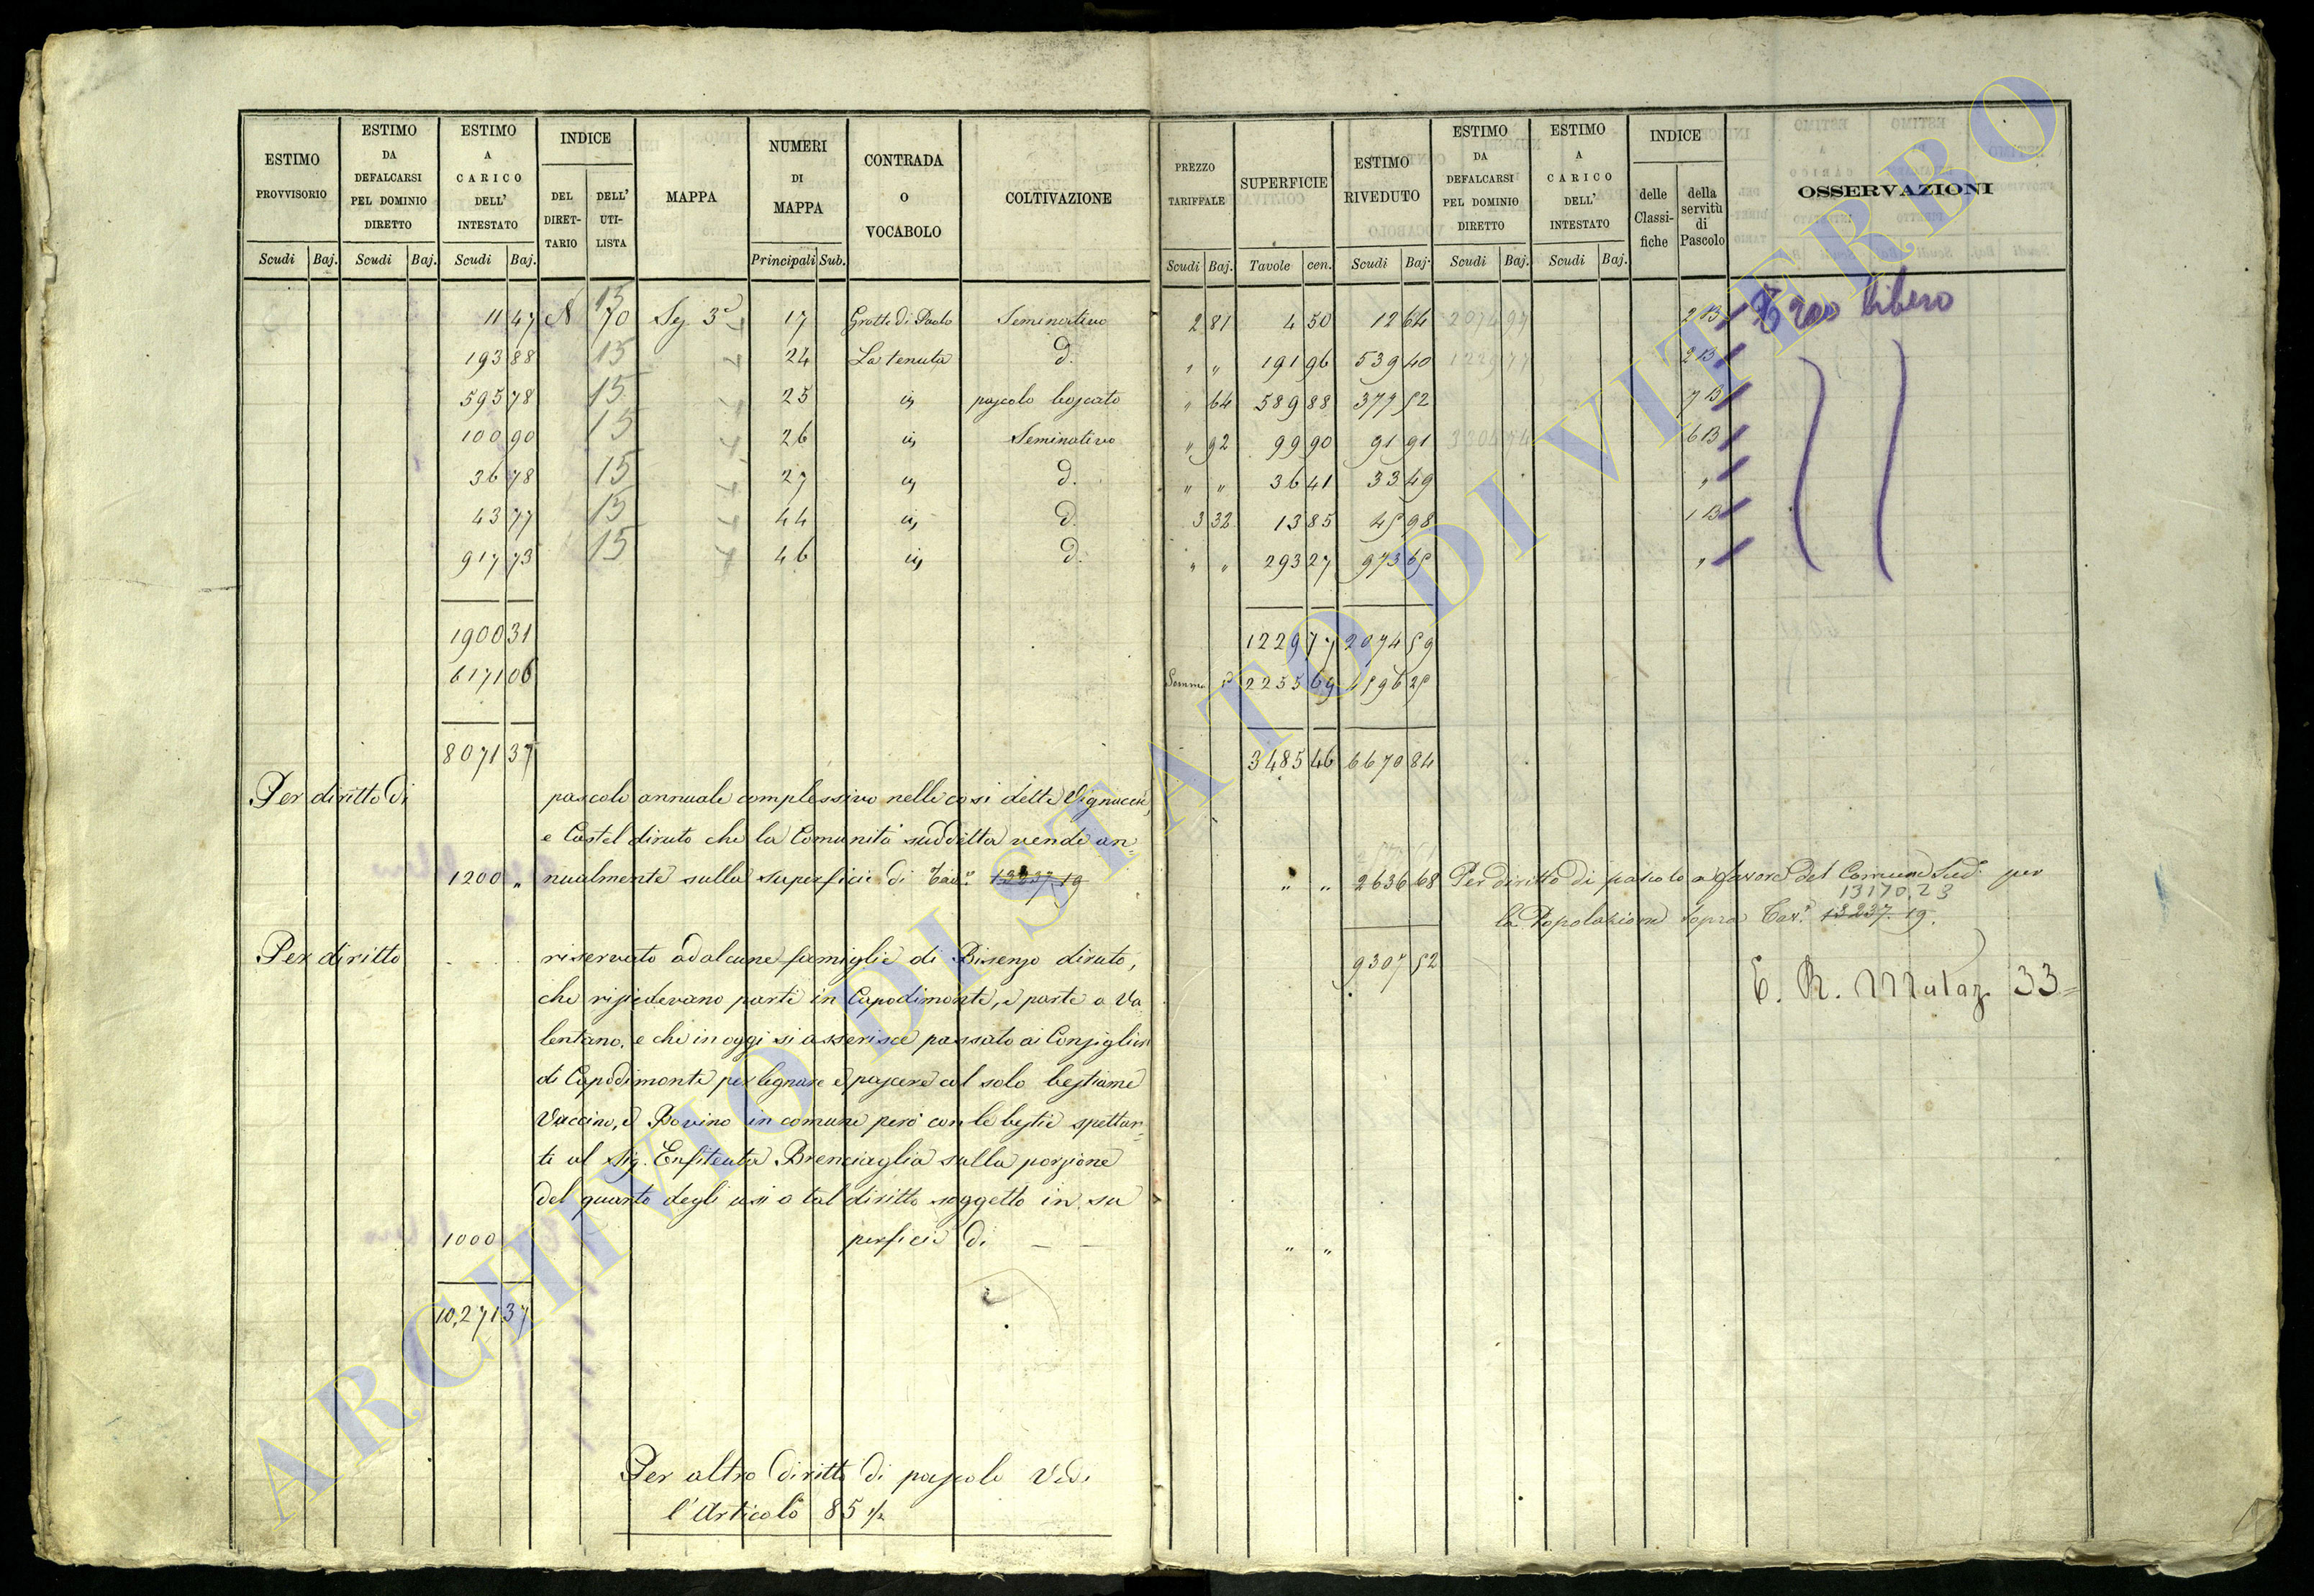 ESTIMO PROVVISORIO
ESTIMO DA DEFALCARSI PEL DOMINIO DIRETTO
ESTIMO A CARICO DELL' INTESTATO
INDICE
DEL DIRET-TARIO
DELL' UTI-LISTA
MAPPA
NUMERI DI MAPPA
CONTRADA O VOCABOLO
COLTIVAZIONE
PREZZO TARIFFALE
SUPERFICIE
ESTIMO RIVEDUTO
ESTIMO DA DEFALCARSI PEL DOMINIO DIRETTO
ESTIMO A CARICO DELL' INTESTATO
INDICE
delle Classi-fiche
della servitù di Pascolo
OSSERVAZIONI
Scudi Baj. Scudi Baj. Scudi Baj. Principali Sub. Scudi Baj. Tavole cen. Scudi Baj. Scudi Baj. Scudi Baj.
11 47 N 70 15 Sez. 3ª 17 Grotte di Paolo Seminativo 2 81 4 50 12 64 2074 2 B libero
193 88 15 24 La tenuta d. " " 191 96 539 40 1229 77 2 B
595 78 15 25 pascolo boscato " 64 589 88 377 52 7 B
100 90 15 26 Seminativo " 92 99 90 91 91 6 B
36 78 15 27 d. " " 36 41 33 49 "
43 77 15 44 d. 3 32 13 85 45 98 1 B
917 73 15 46 d. " " 293 27 973 65 "
1900 31 1229 77 2074 59
6171 06 Somma 2255 69 4596 25
8071 37 3485 46 6670 84
Per diritto di pascolo annuale complessivo nelle così dette Vignaccie,
e Castel diruto che la Comunità suddetta vende an=
1200 " nualmente sulla superficie di Tav.e 13237 19 " " 2636 68 Per diritto di pascolo a favore del Comune Sud.o per
13170.23
la Popolazione sopra Tav.e 13237.19.
9307 52
Per diritto riservato ad alcune famiglie di Bisenzo diruto,
E. R. Mutaz. 33=
che risiedevano parte in Capodimonte, e parte a Va
lentano, e che in oggi si asserisce passato ai Consiglieri
di Capodimonte per legnare e pascere col solo bestiame
Vaccino, e Bovino in comune però con le bestie spettan=
ti al Sig. Enfiteuta Brenciaglia sulla porzione
del quarto degli usi a tal diritto soggetto in su
1000 perficie di — — " "
10,271 37
Per altro diritto di pascolo Vedi
l'Articolo 85 1/2
ARCHIVIO DI STATO DI VITERBO